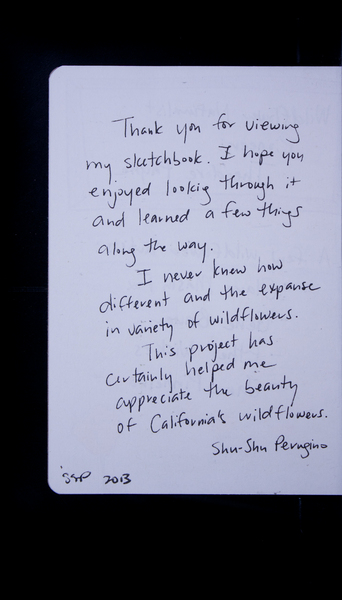 Thank you for viewing
my sketchbook. I hope you
enjoyed lookig through it
and learned a few things
along the way.
I never knew how
different and the expanse
in variety of wildflowers.
This project has
certainly helped me
appreciate the beauty
of California's wildflowers.
Shu-Shu Perugino
SSP 2013